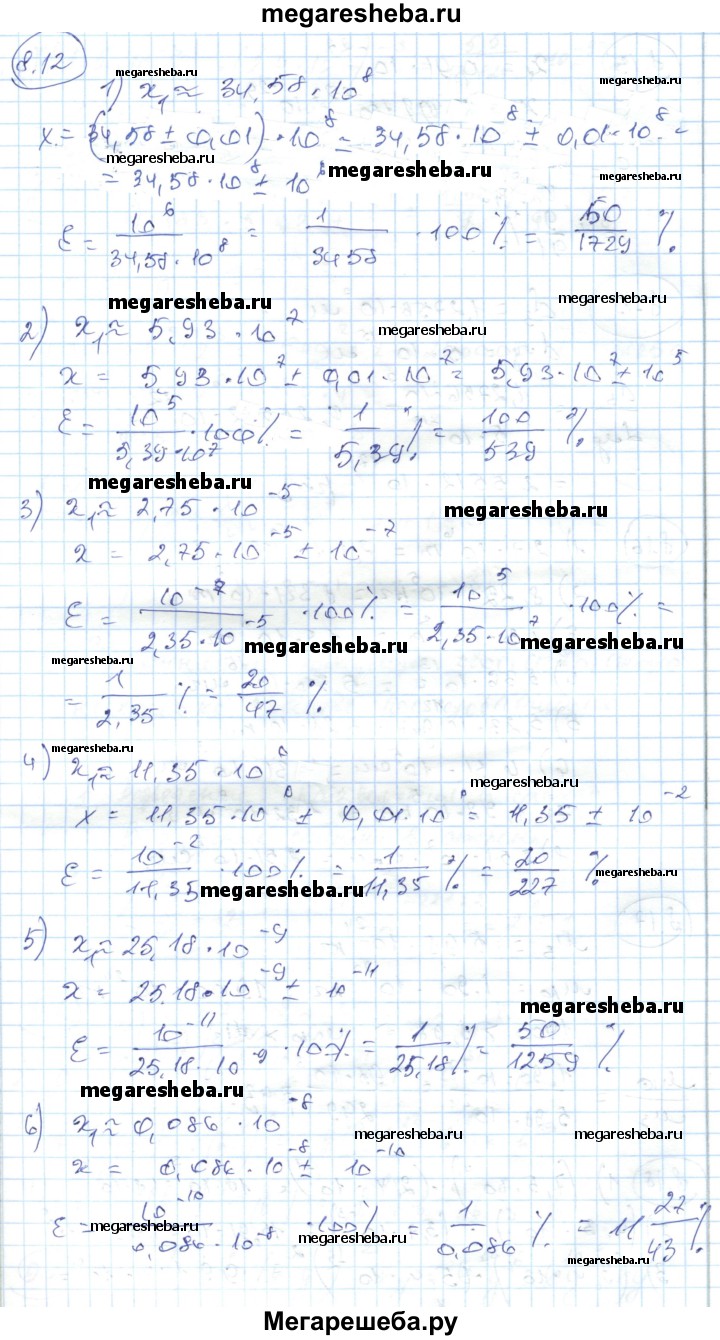 megaresheba.ru
8.12
megaresheba.ru
megaresheba.ru
1) x₁ ≈ 34,58 · 10⁸
x = (34,58 ± 0,01) · 10⁸ = 34,58 · 10⁸ ± 0,01 · 10⁸ =
megaresheba.ru
= 34,58 · 10⁸ ± 10⁶
megaresheba.ru
megaresheba.ru
ε = 10⁶/(34,58 · 10⁸) = 1/3458 · 100% = 50/1729 %
megaresheba.ru
megaresheba.ru
2) x₁ ≈ 5,93 · 10⁷
megaresheba.ru
x = 5,93 · 10⁷ ± 0,01 · 10⁷ = 5,93 · 10⁷ ± 10⁵
ε = 10⁵/(5,39 · 10⁷) · 100% = 1/5,39 % = 100/539 %
megaresheba.ru
3) x₁ ≈ 2,75 · 10⁻⁵
megaresheba.ru
x = 2,75 · 10⁻⁵ ± 10⁻⁷
ε = 10⁻⁷/(2,35 · 10⁻⁵) · 100% = 10⁵/(2,35 · 10⁷) · 100% =
megaresheba.ru
megaresheba.ru
megaresheba.ru
= 1/2,35 % = 20/47 %
megaresheba.ru
4) x₁ ≈ 11,35 · 10⁰
megaresheba.ru
x = 11,35 · 10⁰ ± 0,01 · 10⁰ = 11,35 ± 10⁻²
ε = 10⁻²/11,35 · 100% = 1/11,35 % = 20/227 %
megaresheba.ru
megaresheba.ru
5) x₁ ≈ 25,18 · 10⁻⁹
x = 25,18 · 10⁻⁹ ± 10⁻¹¹
megaresheba.ru
ε = 10⁻¹¹/(25,18 · 10⁻⁹) · 100% = 1/25,18 % = 50/1259 %
megaresheba.ru
6) x₁ ≈ 0,086 · 10⁻⁸
megaresheba.ru
megaresheba.ru
x = 0,086 · 10⁻⁸ ± 10⁻¹⁰
ε = 10⁻¹⁰/(0,086 · 10⁻⁸) · 100% = 1/0,086 % = 11 27/43 %
megaresheba.ru
megaresheba.ru
megaresheba.ru
Мегарешеба.ру